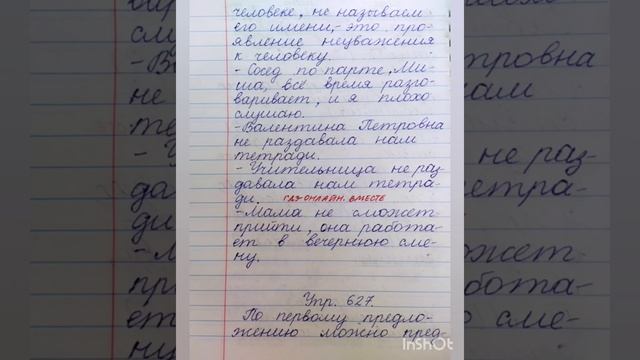 человеке, не называем
его имени, - это про-
явление неуважения
к человеку.
- Сосед по парте, Ми-
ша, всё время разго-
варивает, и я плохо
слушаю.
- Валентина Петровна
не раздавала нам
тетради.
- Учительница не раз-
давала нам тетра-
ди. ГДЗ-ОНЛАЙН. ВМЕСТЕ
- Мама не сможет
прийти, она работа-
ет в вечернюю сме-
ну.
Упр. 627.
По первому предло-
жению можно пред-
InShOt